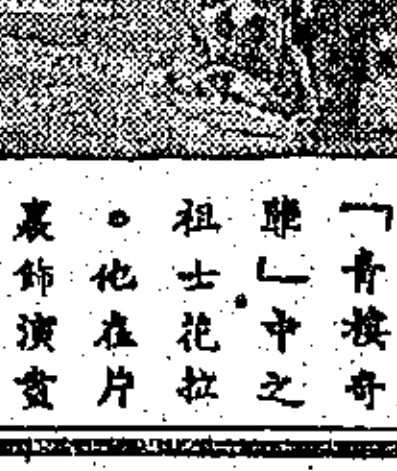 「青樓奇
」中之
祖士·花拉
。他在片
裏飾演